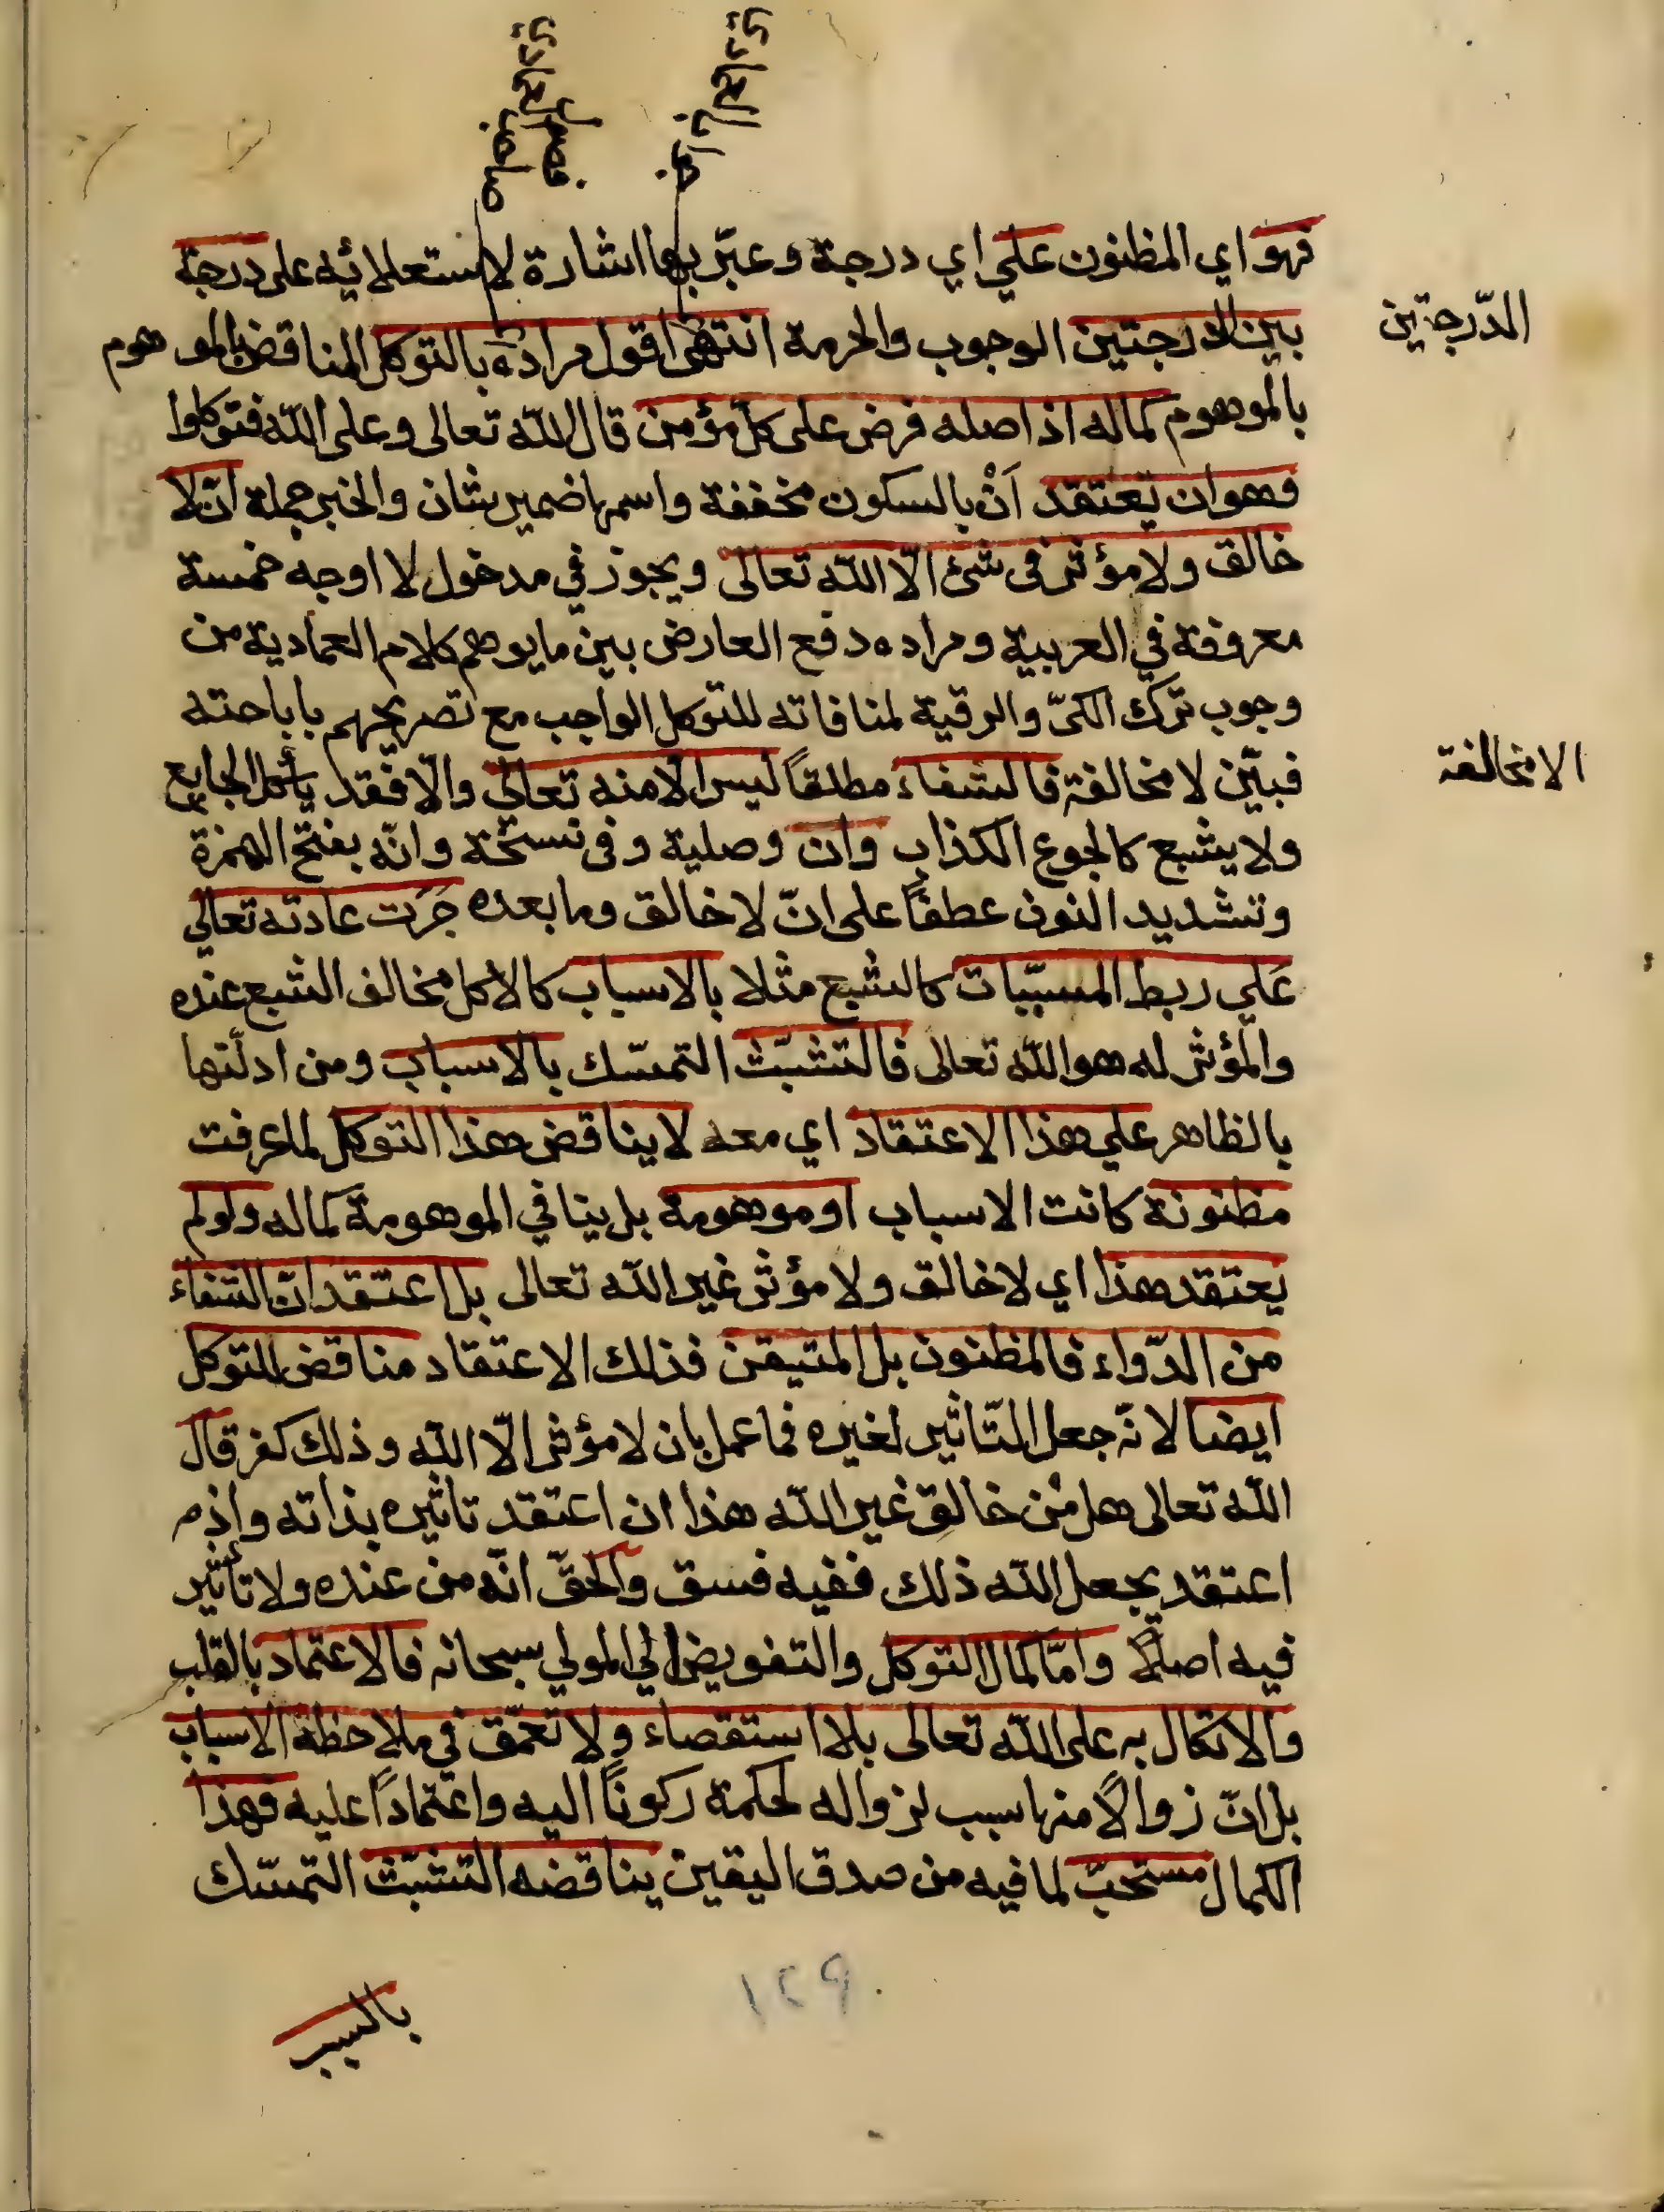 جواب العمادي
صاحب الفصول العمادي
فهو اي المظنون علي اي درجة وعبّر بها اشارة لاستعلائه على درجة
الدّرجتين
بين الدرجتين الوجوب والحرمة انتهى اقول مراده بالتوكل المناقض بالموهوم
بالموهوم كماله اذ اصله فرض على كلّ مؤمن قال الله تعالى وعلى الله فتوكلوا
فهو ان يعتقد اَنْ بالسكون مخففة واسمها ضمير شان والخبر جملة ان لا
خالق ولا مؤثر في شئ الّا الله تعالى ويجوز في مدخول لا اوجه خمسة
معروفة في العربية ومراده دفع العارض بين ما يوهم كلام العمادية من
وجوب ترك الكىّ والرقية لمنافاته للتوكل الواجب مع تصريحهم باباحته
الا مخالفة
فبيّن لا مخالفة فالشفاء مطلقاً ليس الا منه تعالي والّا فقد يأكل الجايع
ولا يشبع كالجوع الكذاب وان وصلية وفي نسخة وانّه بفتح الهمزة
وتشديد النون عطفاً على انّ لا خالق وما بعده جَرَت عادته تعالي
عَلي ربط المسبّبات كالشبع مثلا بالاسباب كالاكل مخالف الشبع عنده
والمؤثر له هو الله تعالى فالتشبّث التمسّك بالاسباب ومن ادلّتها
بالظاهر علي هذا الاعتقاد اي معه لا يناقض هذا التوكل لما عرفت
مظنونة كانت الاسباب او موهومة بل ينافي الموهومة كماله ولو لم
يعتقد هذا اي لا خالق ولا مؤثر غير الله تعالى بل اعتقد انّ الشفاء
من الدّواء فالمظنون بل المتيقن فذلك الاعتقاد مناقض للتوكل
ايضا لانّه جعل التّاثير لغيره فما عمل بان لا مؤثر الّا الله وذلك كفر قال
الله تعالى هل مِن خالقٍ غير الله هذا ان اعتقد تاثيره بذاته واذم
اعتقد بجعل الله ذلك ففيه فسق والحقّ انّه من عنده ولا تأثير
فيه اصلاً وامّا كمال التوكل والتفويض الي المولي سبحانه فالاعتماد بالقلب
والاتكال به على الله تعالى بلا استقصاء ولا تعمّق في ملاحظة الاسباب
بل انّ زوالاً منها سبب لزواله لحكمة ركوناً اليه واعتماداً عليه فهذا
الكمال مستحبّ لما فيه من صدق اليقين يناقضه التشبّث التمسّك
١٢٩
بالسبب